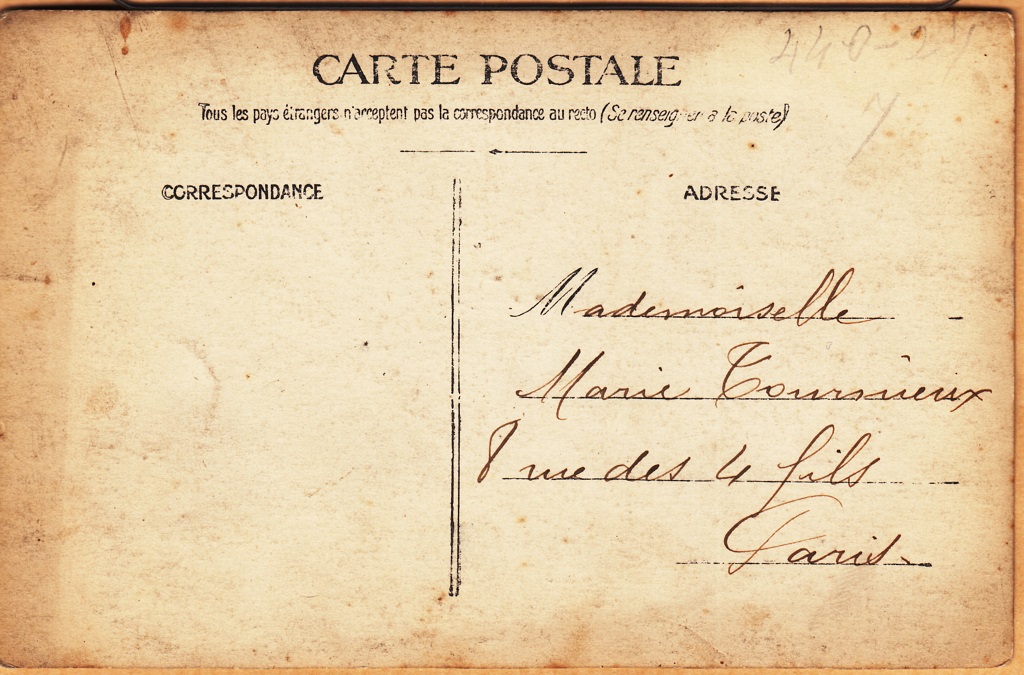 CARTE POSTALE
Tous les pays étrangers n'acceptent pas la correspondance au recto (Se renseigner à la poste)
CORRESPONDANCE
ADRESSE
Mademoiselle
Marie
8 rue des 4 fils
Paris